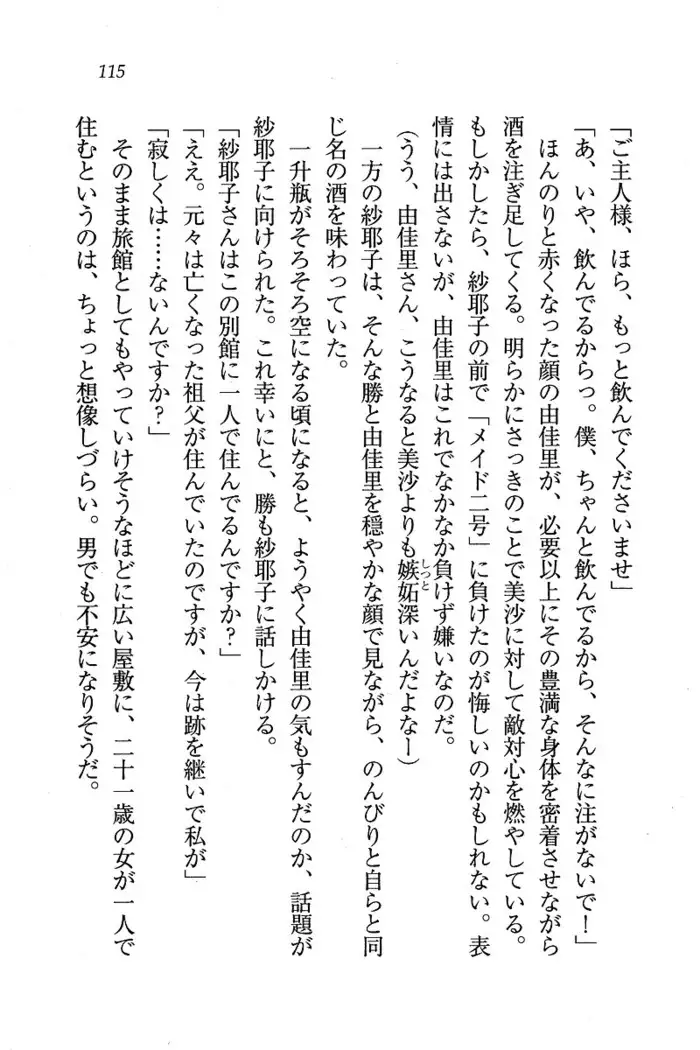 115
「ご主人様、ほら、もっと飲んでくださいませ」
「あ、いや、飲んでるからっ。僕、ちゃんと飲んでるから、そんなに注がないで！」
ほんのりと赤くなった顔の由佳里が、必要以上にその豊満な身体を密着させながら
酒を注ぎ足してくる。明らかにさっきのことで美沙に対して敵対心を燃やしている。
もしかしたら、紗耶子の前で「メイド二号」に負けたのが悔しいのかもしれない。表
情には出さないが、由佳里はこれでなかなか負けず嫌いなのだ。
（うう、由佳里さん、こうなると美沙よりも嫉妬深いんだよなー）
しっと
一方の紗耶子は、そんな勝と由佳里を穏やかな顔で見ながら、のんびりと自らと同
じ名の酒を味わっていた。
一升瓶がそろそろ空になる頃になると、ようやく由佳里の気もすんだのか、話題が
紗耶子に向けられた。これ幸いにと、勝も紗耶子に話しかける。
「紗耶子さんはこの別館に一人で住んでるんですか？」
「ええ。元々は亡くなった祖父が住んでいたのですが、今は跡を継いで私が」
「寂しくは……ないんですか？」
そのまま旅館としてもやっていけそうなほどに広い屋敷に、二十一歳の女が一人で
住むというのは、ちょっと想像しづらい。男でも不安になりそうだ。